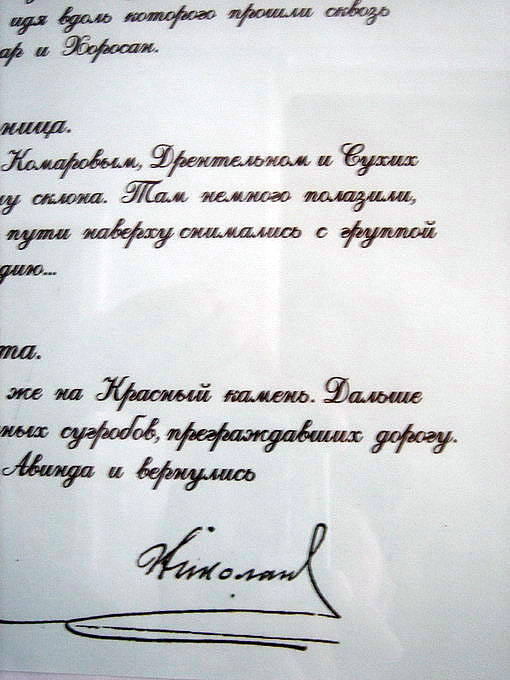 идя вдоль которого прошли сквозь
ар и Хоросан.
ница.
Комаровым, Дрентельном и Сухих
му склона. Там немного полазили,
пути наверху снимались с группой
дию...
та.
же на Красный камень. Дальше
ных сугробов, преграждавших дорогу.
Авинда и вернулись
Николай